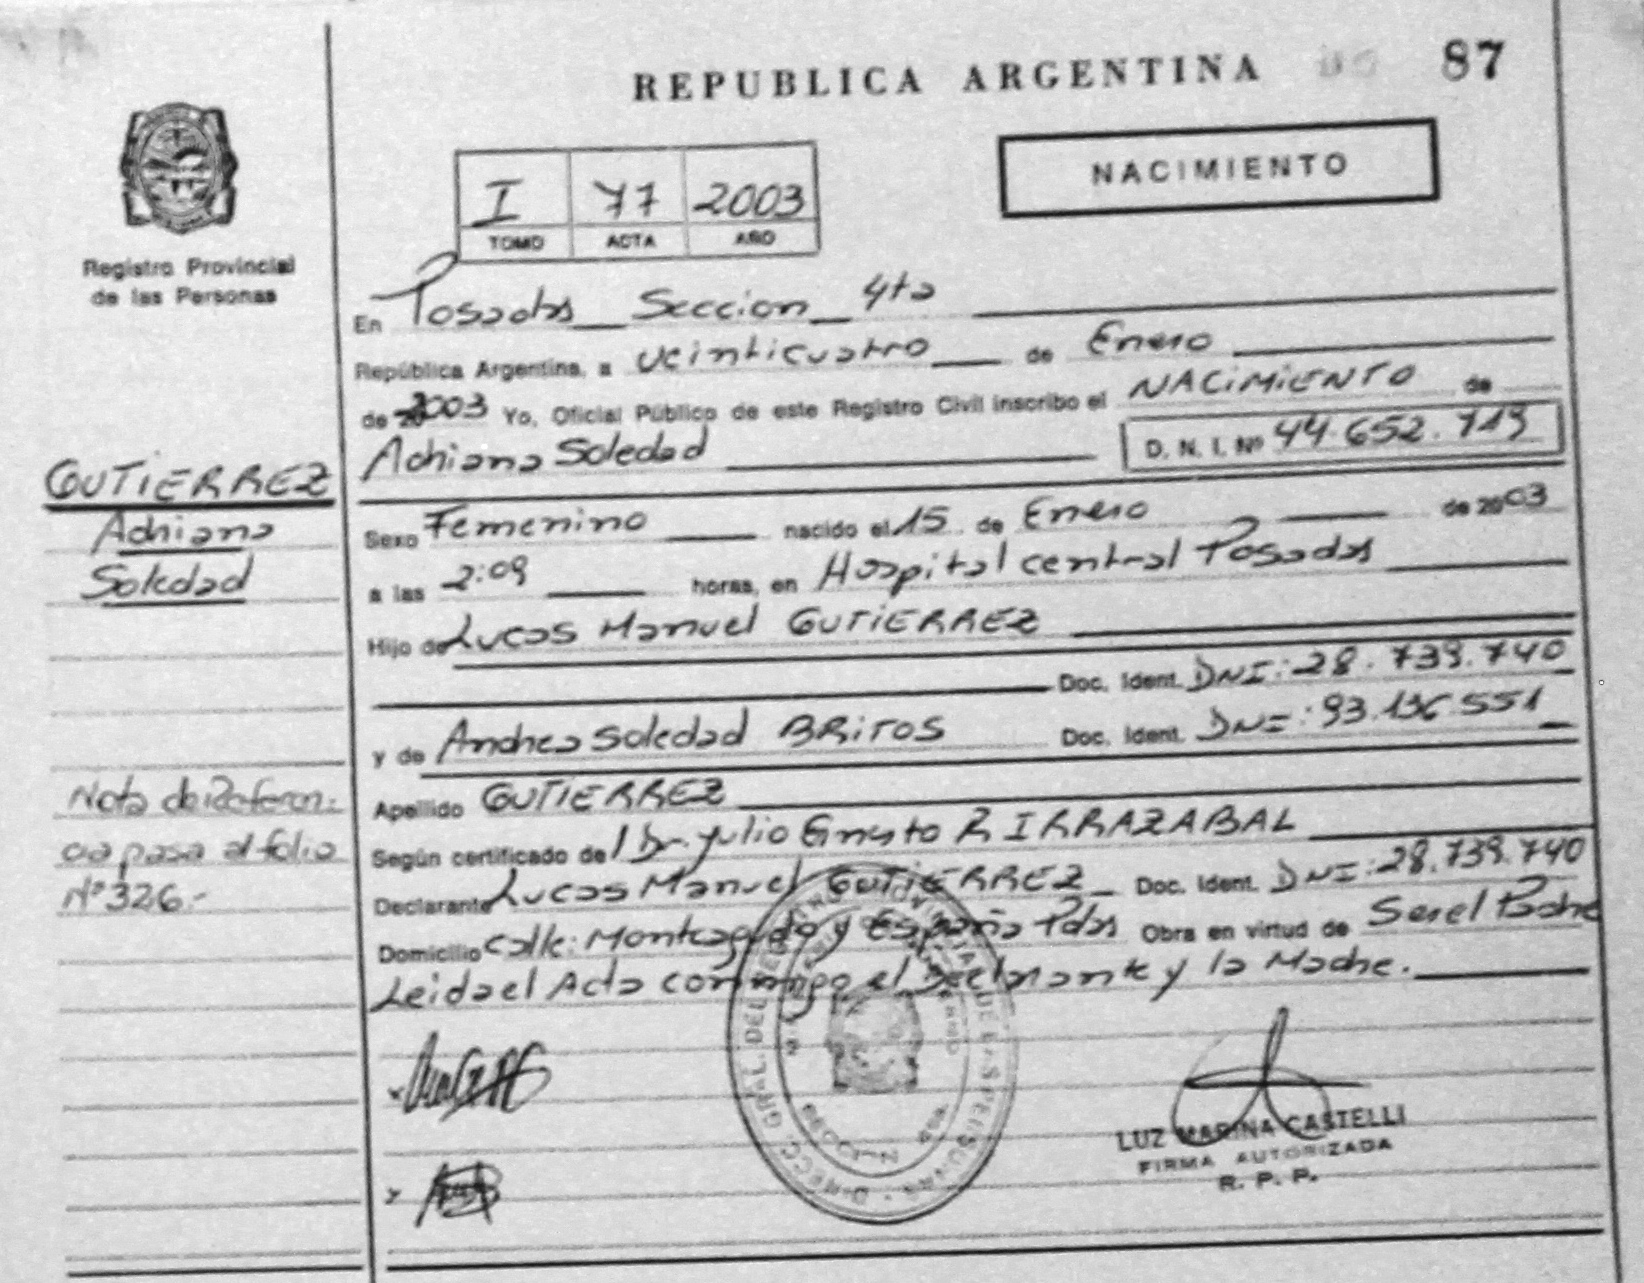 REPUBLICA ARGENTINA 87
NACIMIENTO
I 77 2003
TOMO ACTA AÑO
Registro Provincial
de las Personas
En Posadas Seccion 4ta
República Argentina, a veinticuatro de Enero
de 2003 Yo, Oficial Público de este Registro Civil inscribo el NACIMIENTO de
Adriana Soledad D. N. I. Nº 44.652.719
GUTIERREZ
Adriana
Soledad
Sexo Femenino nacido el 15 de Enero de 2003
a las 2:09 horas, en Hospital central Posadas
Hijo de Lucas Manuel GUTIERREZ
Doc. Ident. DNI: 28.739.740
y de Andrea Soledad BRITOS Doc. Ident. DNI: 93.136.551
Apellido GUTIERREZ
Según certificado de Dr. Julio Ernesto R IRRAZABAL
Declarante Lucas Manuel GUTIERREZ Doc. Ident. DNI: 28.739.740
Domicilio calle: Monteagudo y España Pdas Obra en virtud de Ser el Padre
Leida el Acta conmigo el Declarante y la Madre.
Nota de Referen-
cia pasa al folio
Nº 326.-
LUZ MARINA CASTELLI
FIRMA AUTORIZADA
R. P. P.